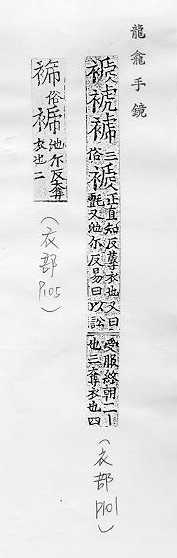 龍龕手鏡
三俗褫正直知反奪衣也又曰又池尒反易曰以訟受服終朝二也三奪衣也四
（衣部 P101）
俗池尒反奪衣也二
（衣部 P105）